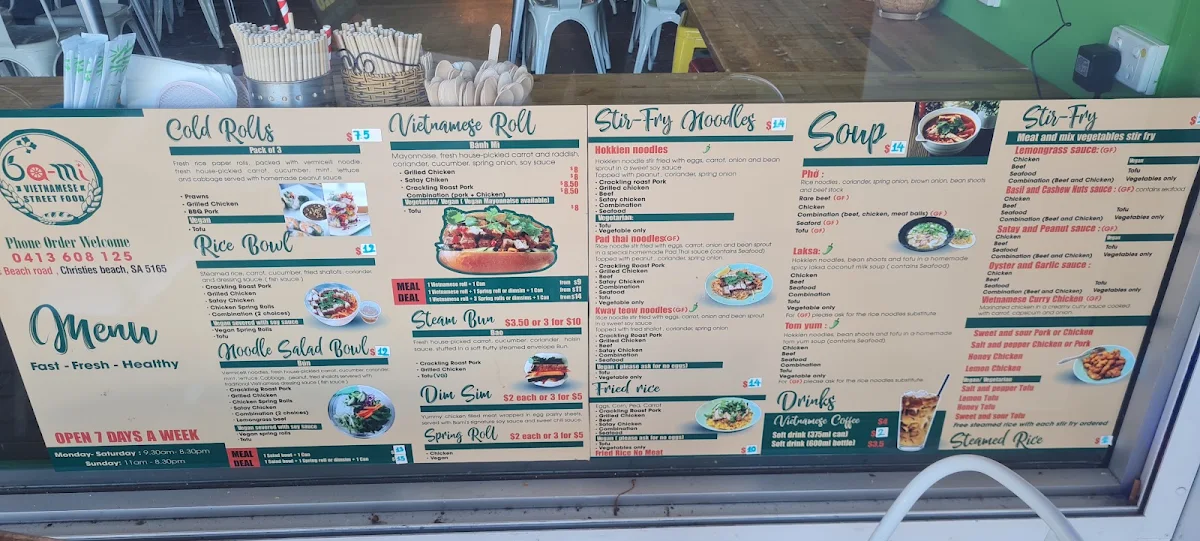 Bo-mi
VIETNAMESE
STREET FOOD
Phone Order Welcome
0413 608 125
Beach road, Christies beach, SA 5165
Menu
Fast - Fresh - Healthy
OPEN 7 DAYS A WEEK
Monday- Saturday : 9.30am- 8.30pm
Sunday: 11am - 8.30pm
Cold Rolls $7.5
Pack of 3
Fresh rice paper rolls, packed with vermicelli noodle,
fresh house-pickled carrot, cucumber, mint lettuce
and cabbage served with homemade peanut sauce
- Prawns
- Grilled Chicken
- BBQ Pork
Vegan
- Tofu
Rice Bowl $12
Steamed rice, carrot, cucumber, fried shallots, coriander
and dressing sauce ( fish sauce )
- Crackling Roast Pork
- Grilled Chicken
- Satay Chicken
- Chicken Spring Rolls
- Combination (2 choices)
Vegan severed with soy sauce
- Vegan Spring Rolls
- Tofu
Noodle Salad Bowl $12
Bún
- Crackling Roast Pork
- Grilled Chicken
- Chicken Spring Rolls
- Satay Chicken
- Combination (2 choices)
- Lemongrass beef
Vegan severed with soy sauce
- Vegan spring rolls
- Tofu
MEAL DEAL
1 Salad bowl + 1 Can
1 Salad bowl + 1 Spring roll or dimsim + 1 Can
Vietnamese Roll
Bánh Mì
Mayonnaise, fresh house-pickled carrot and raddish,
coriander, cucumber, spring onion, soy sauce
- Grilled Chicken $8
- Satay Chiken $8
- Crackling Roast Pork $8.50
- Combination (pork + Chicken) $8.50
Vegetarian/ Vegan ( Vegan Mayonnaise available)
- Tofu $8
MEAL DEAL
1 Vietnamese roll + 1 Can from $9
1 Vietnamese roll + 1 Spring roll or dimsim + 1 Can from $11
1 Vietnamese roll + 3 Spring rolls or dimsims + 1 Can from $14
Steam Bun $3.50 or 3 for $10
Bao
Fresh house-pickled carrot, cucumber, coriander, hoisin
sauce, stuffed in a soft fluffy steamed envelope Bun.
- Crackling Roast Pork
- Grilled Chicken
- Tofu (VG)
Dim Sim $2 each or 3 for $5
Yummy chicken filled meat wrapped in egg pastry sheets,
Spring Roll $2 each or 3 for $5
- Chicken
- Vegan
Stir-Fry Noodles $14
Hokkien noodles
Hokkien noodle stir fried with eggs, carrot, onion and bean
sprout in a sweet soy sauce
Topped with peanut , coriander, spring onion
- Crackling roast Pork
- Grilled chicken
- Beef
- Satay chicken
- Combination
- Seafood
Vegetarian:
- Vegetable only
- Tofu
Pad thai noodles(GF)
Rice noodle stir fried with eggs, carrot, onion and bean sprout
in a special homemade Pad Thai sauce (contains Seafood)
Topped with peanut , coriander, spring onion
- Crackling Roast Pork
- Grilled Chicken
- Beef
- Satay Chicken
- Combination
- Seafood
- Tofu
- Vegetable only
Kway teow noodles(GF)
Rice noodle stir fried with eggs, carrot, onion and bean sprout
in a sweet soy sauce
Topped with fried shallot , coriander, spring onion
- Crackling Roast Pork
- Grilled Chicken
- Beef
- Satay Chicken
- Combination
- Seafood
Vegan ( please ask for no eggs)
- Tofu
- Vegetable only
Fried rice $14
Eggs, Corn, Pea, Carrot
- Crackling Roast Pork
- Grilled Chicken
- Beef
- Satay Chicken
- Combination
- Seafood
Vegan ( please ask for no eggs)
- Tofu
- Vegetables only
Fried Rice No Meat $10
Soup $14
Phở :
Rice noodles, coriander, spring onion, brown onion, bean shoots
and beef stock
Rare beef (GF)
Chicken
Combination (beef, chicken, meat balls) (GF)
Seafood (GF)
Tofu (GF)
Laksa:
Hokkien noodles, bean shoots and tofu in a homemade
spicy laksa coconut milk soup ( contains Seafood)
Chicken
Beef
Seafood
Combination
Tofu
Vegetable only
For (GF) please ask for the rice noodles substitute
Tom yum :
Hokkien noodles, bean shoots and tofu in a homemade
tom yum soup (contains Seafood)
Chicken
Beef
Seafood
Combination
Tofu
Vegetable only
For (GF) please ask for rice noodles substitute
Drinks
Vietnamese Coffee $4
Soft drink (375ml can) $2
Soft drink (600ml bottle) $3.5
Stir-Fry
Meat and mix vegetables stir fry
Lemongrass sauce: (GF)
Chicken
Beef
Seafood
Combination (Beef and Chicken)
Vegan
Tofu
Vegetables only
Basil and Cashew Nuts sauce : (GF) contains seafood
Chicken
Beef
Seafood
Combination (Beef and Chicken)
Tofu
Vegetables only
Satay and Peanut sauce : (GF)
Chicken
Beef
Seafood
Combination (Beef and Chicken)
Vegan
Tofu
Vegetables only
Oyster and Garlic sauce :
Chicken
Beef
Seafood
Combination (Beef and Chicken)
Vegan
Tofu
Vegetables only
Vietnamese Curry Chicken (GF)
Marinated chicken in a creamy curry sauce cooked
with carrot, capsicum and onion.
Sweet and sour Pork or Chicken
Salt and pepper Chicken or Pork
Honey Chicken
Lemon Chicken
Vegan/ Vegetarian
Salt and pepper Tofu
Lemon Tofu
Honey Tofu
Sweet and sour Tofu
Free steamed rice with each stir fry ordered
Steamed Rice